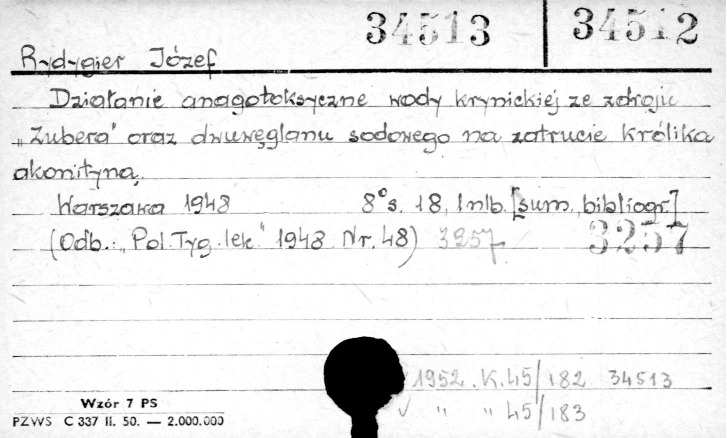 34513 | 34512
Rydygier Józef
Działanie anagotoksyczne wody krynickiej ze zdroju
„Zubera" oraz dwuwęglanu sodowego na zatrucie królika
akonityną.
Warszawa 1948 8° s. 18, 1 nlb. [sum., bibliogr.]
(Odb.: „Pol. Tyg. lek." 1948 Nr. 48) 3257 3257
1952. K. 45/182 34513
√ " " 45/183
Wzór 7 PS
PZWS C 337 II. 50. — 2.000.000